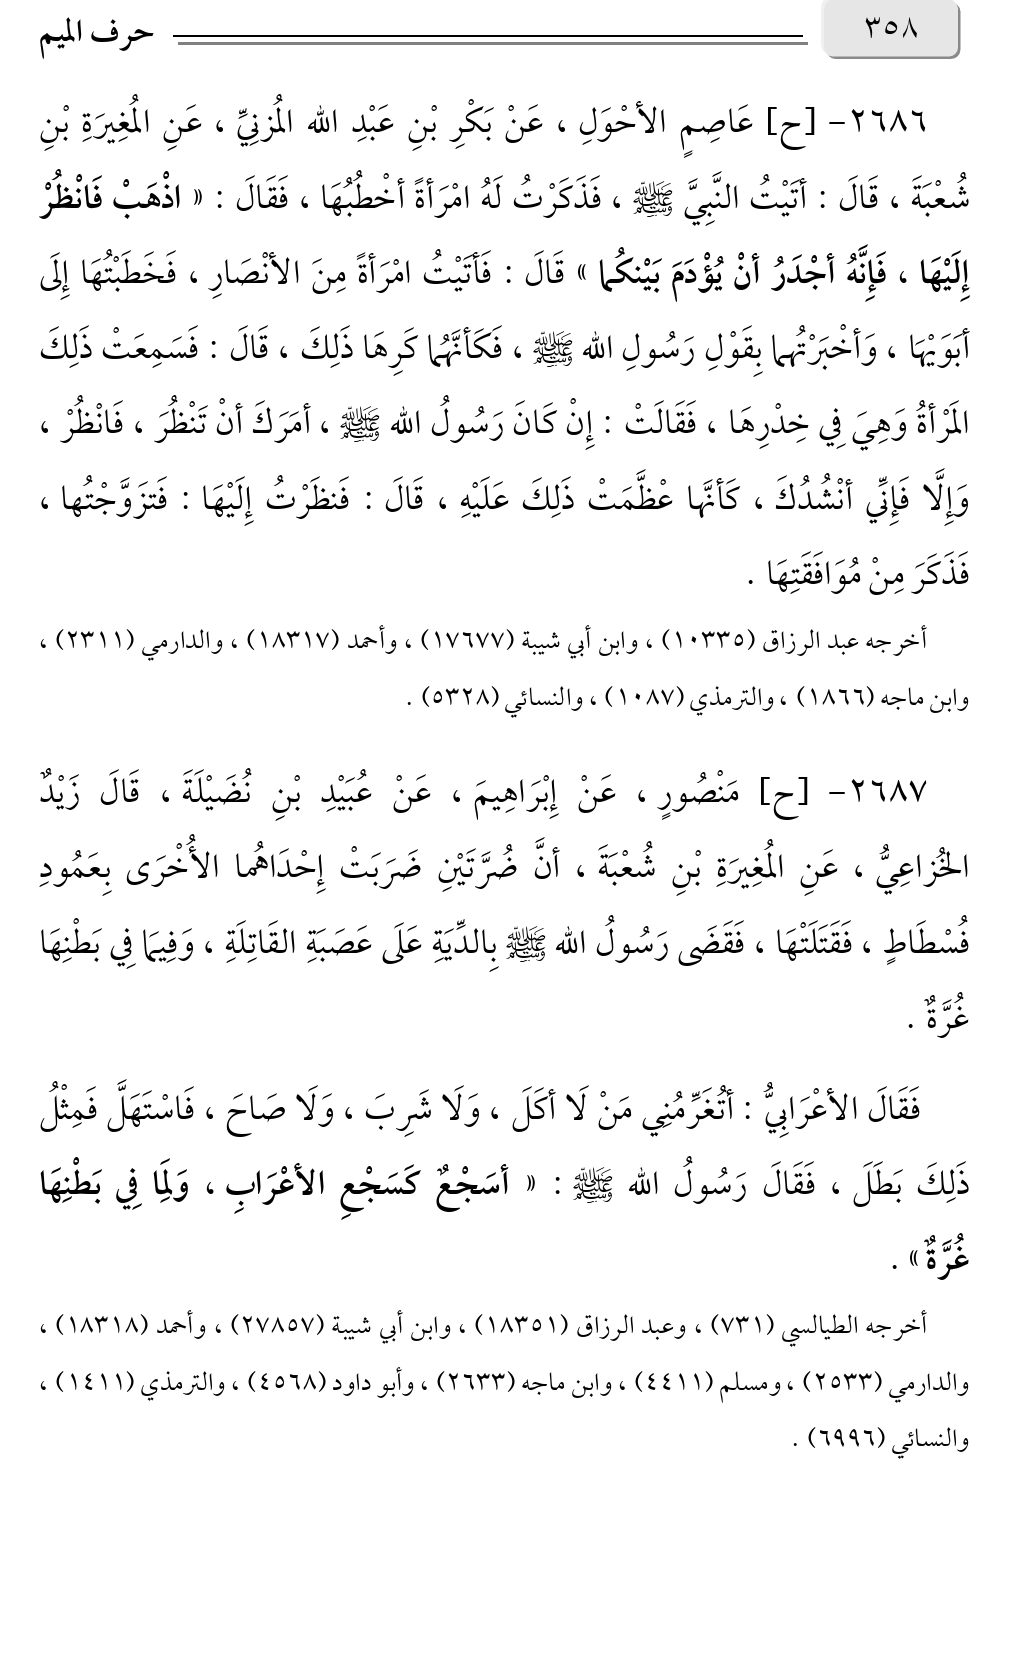 ٣٥٨ حرف الميم
٢٦٨٦- [ح] عَاصِمٍ الأحْوَلِ ، عَنْ بَكْرِ بْنِ عَبْدِ الله المُزنِيِّ ، عَنِ المُغِيرَةِ بْنِ
شُعْبَةَ ، قَالَ : أتَيْتُ النَّبِيَّ ﷺ ، فَذَكَرْتُ لَهُ امْرَأةً أخْطُبُهَا ، فَقَالَ : « اذْهَبْ فَانْظُرْ
إِلَيْهَا ، فَإِنَّهُ أجْدَرُ أنْ يُؤْدَمَ بَيْنكُما » قَالَ : فَأتَيْتُ امْرَأةً مِنَ الأنْصَارِ ، فَخَطَبْتُهَا إِلَى
أبَوَيْهَا ، وَأخْبَرْتُهما بِقَوْلِ رَسُولِ الله ﷺ ، فَكَأنَّهُما كَرِهَا ذَلِكَ ، قَالَ : فَسَمِعَتْ ذَلِكَ
المَرْأةُ وَهِيَ فِي خِدْرِهَا ، فَقَالَتْ : إِنْ كَانَ رَسُولُ الله ﷺ ، أمَرَكَ أنْ تَنْظُرَ ، فَانْظُرْ ،
وَإِلَّا فَإِنِّي أنْشُدُكَ ، كَأنَّها عْظَّمَتْ ذَلِكَ عَلَيْهِ ، قَالَ : فَنظَرْتُ إِلَيْهَا : فَتزَوَّجْتُها ،
فَذَكَرَ مِنْ مُوَافَقَتِهَا .
أخرجه عبد الرزاق (١٠٣٣٥) ، وابن أبي شيبة (١٧٦٧٧) ، وأحمد (١٨٣١٧) ، والدارمي (٢٣١١) ،
وابن ماجه (١٨٦٦) ، والترمذي (١٠٨٧) ، والنسائي (٥٣٢٨) .
٢٦٨٧- [ح] مَنْصُورٍ ، عَنْ إِبْرَاهِيمَ ، عَنْ عُبَيْدِ بْنِ نُضَيْلَةَ ، قَالَ زَيْدٌ
الخُزاعِيُّ ، عَنِ المُغِيرَةِ بْنِ شُعْبَةَ ، أنَّ ضُرَّتَيْنِ ضَرَبَتْ إِحْدَاهُما الأُخْرَى بِعَمُودِ
فُسْطَاطٍ ، فَقَتَلَتْهَا ، فَقَضَى رَسُولُ الله ﷺ بِالدِّيَةِ عَلَى عَصَبَةِ القَاتِلَةِ ، وَفِيمَا فِي بَطْنِهَا
غُرَّةٌ .
فَقَالَ الأعْرَابِيُّ : أتُغَرِّمُنِي مَنْ لَا أكَلَ ، وَلَا شَرِبَ ، وَلَا صَاحَ ، فَاسْتَهَلَّ فَمِثْلُ
ذَلِكَ بَطَلَ ، فَقَالَ رَسُولُ الله ﷺ : « أسَجْعٌ كَسَجْعِ الأعْرَابِ ، وَلِمَا فِي بَطْنِهَا
غُرَّةٌ » .
أخرجه الطيالسي (٧٣١) ، وعبد الرزاق (١٨٣٥١) ، وابن أبي شيبة (٢٧٨٥٧) ، وأحمد (١٨٣١٨) ،
والدارمي (٢٥٣٣) ، ومسلم (٤٤١١) ، وابن ماجه (٢٦٣٣) ، وأبو داود (٤٥٦٨) ، والترمذي (١٤١١) ،
والنسائي (٦٩٩٦) .